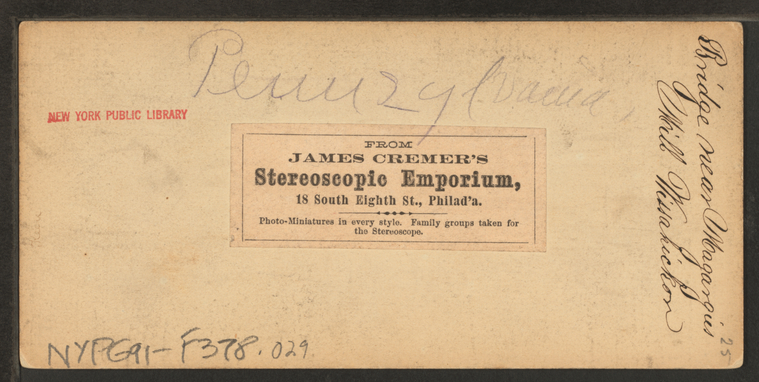 Pennzylvania
NEW YORK PUBLIC LIBRARY
FROM
JAMES CREMER'S
Stereoscopic Emporium,
18 South Eighth St., Philad'a.
Photo-Miniatures in every style. Family groups taken for
the Stereoscope.
Bridge near Magargis
Mill Wissahickon
25
NYPG91-F378.029